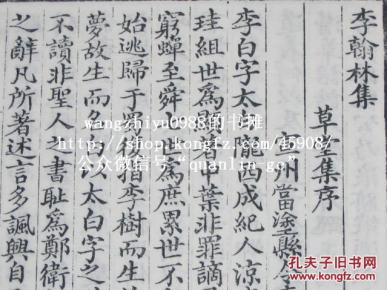 李翰林集
草堂集序
州當塗縣令李
李白字太
隴西成紀人涼
珪組世爲
中葉非罪謫
窮蟬至舜
爲庶累世不
始逃歸于
指李樹而生
夢故生而
太白字之
不讀非聖人之書恥爲鄭衛
之辭凡所著述言多諷興自
wangzhiyu0988的书摊
http://shop.kongfz.com/45908/
公众微信号"quanlin-go"
孔夫子旧书网